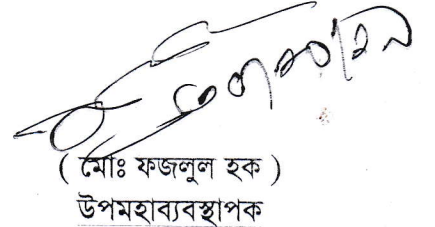 ( মোঃ ফজলুল হক )
উপমহাব্যবস্থাপক